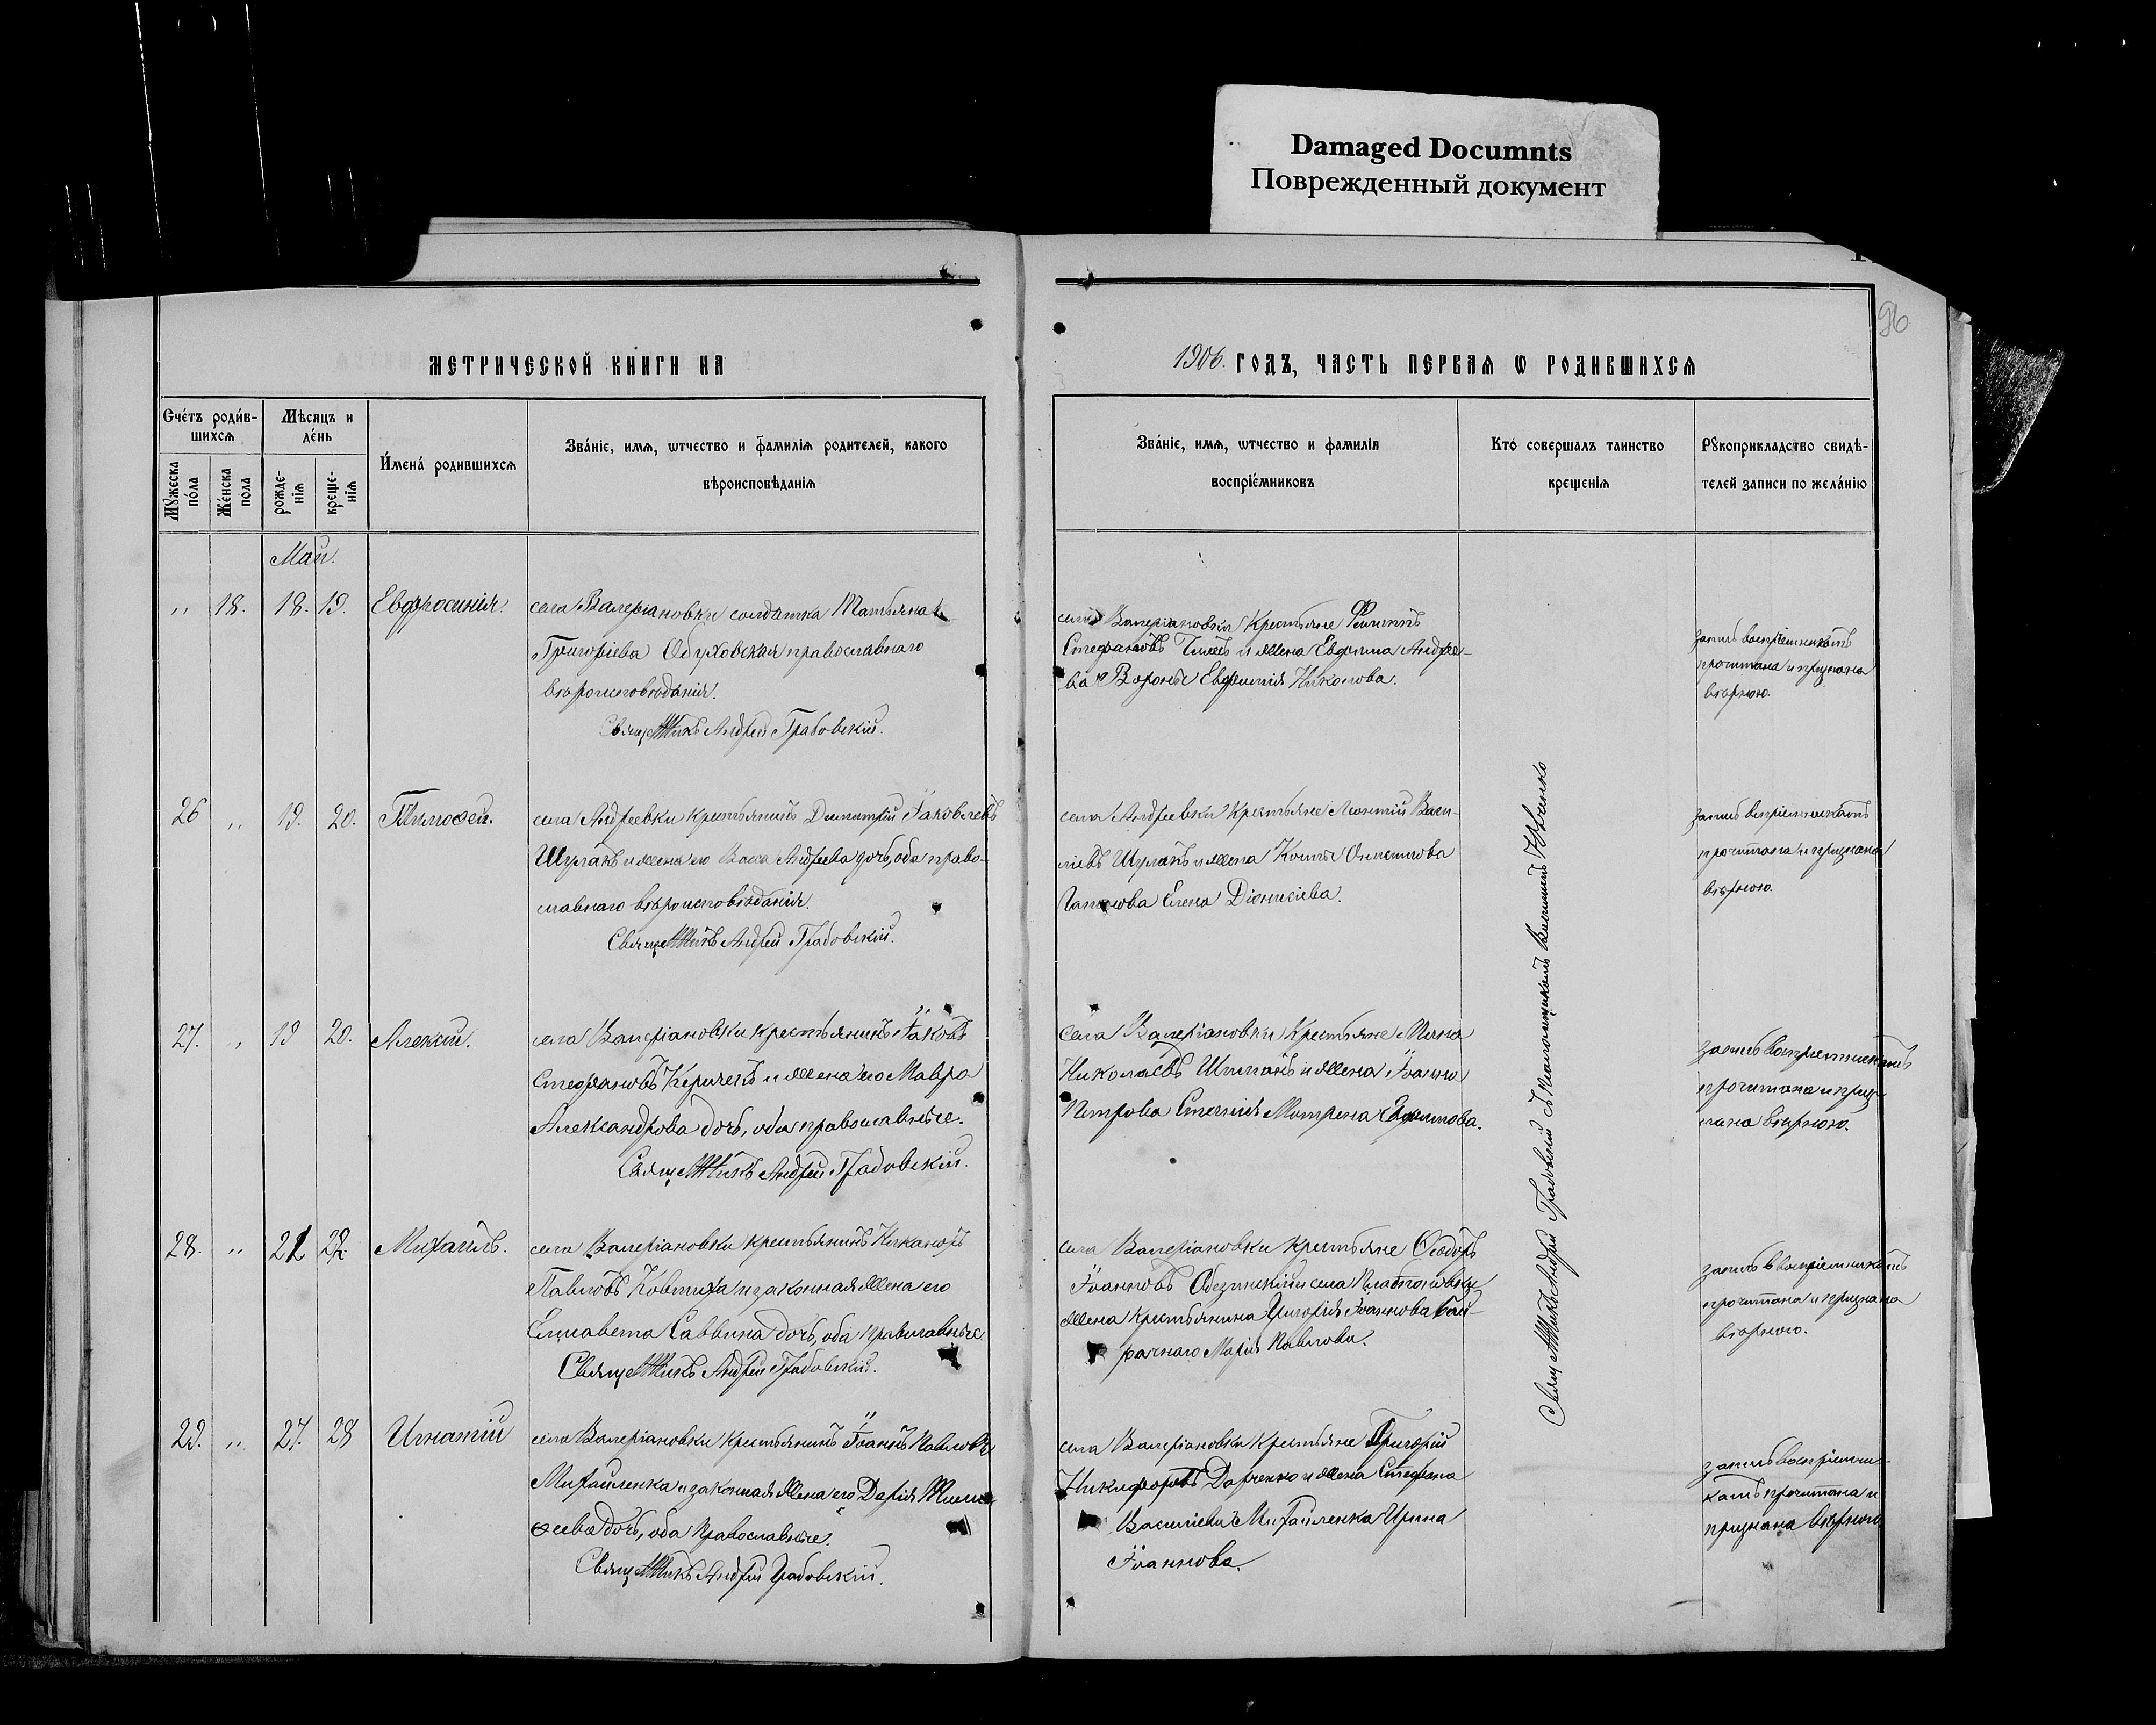 Damaged Documnts
Поврежденный документ
96
МЕТРИЧЕСКОЙ КНИГИ НА
1906. ГОДЪ, ЧАСТЬ ПЕРВАЯ Ѡ РОДИВШИХСЯ
Счетъ родив-
шихся
Мѣсяцъ и
день
Мужеска
пола
Женска
пола
рожде-
нія
креще-
нія
Имена родившихся
Званіе, имя, ѡтчество и фамилія родителей, какого
вѣроисповѣданія
Званіе, имя, ѡтчество и фамилія
воспріемниковъ
Кто совершалъ таинство
крещенія
Рукоприкладство свидѣ-
телей записи по желанію
Май.
" 18. 18. 19. Евфросинія.
села Валеріановки солдатка Татьяна
Григоріева Обуховская православнаго
вѣроисповѣданія.
Священникъ Андрей Грабовскій.
села Валеріановки крестьяне Филиппъ
Стефановъ и жена Андре-
ва Вороны Евфимія Николова.
запись воспріемникамъ
прочитана и признана
вѣрною.
26 " 19. 20. Тимоѳей.
села Андреевки крестьянинъ Димитрій Іаковлевъ
Шулакъ и жена его Васса Андреева дочь, оба право-
славнаго вѣроисповѣданія.
Священникъ Андрей Грабовскій.
села Андреевки крестьяне Леонтій Васи-
ліевъ Шулакъ и жена
Елена Діонисіева.
запись воспріемникамъ
прочитана и признана
вѣрною.
27. " 19 20. Алексій.
села Валеріановки крестьянинъ Іаковъ
Стефановъ и жена его Мавра
Александрова дочь, оба православные.
Священникъ Андрей Грабовскій.
села Валеріановки крестьяне Мина
Николаевъ и жена Іоанна
Петрова Матрена Евфимова.
запись воспріемникамъ
прочитана и приз-
нана вѣрною.
28. " 21 22. Михаилъ.
села Валеріановки крестьянинъ Никаноръ
Павловъ Ковтуха и законная жена его
Елисавета Саввина дочь, оба православные.
Священникъ Андрей Грабовскій.
села Валеріановки крестьяне Ѳеодоръ
Іоанновъ и села
жена крестьянина Григорія Іоаннова Бай-
рачнаго Марія Павлова.
запись воспріемникамъ
прочитана и признана
вѣрною.
29. " 27. 28 Игнатій
села Валеріановки крестьянинъ Іоаннъ Павловъ
Михайленка и законная жена его Дарія Тимо-
ѳеева дочь, оба православные.
Священникъ Андрей Грабовскій.
села Валеріановки крестьяне Григорій
Никифоровъ Даценко и жена Стефана
Василіева Михайленка Ирина
Іоаннова.
запись воспріемни-
камъ прочитана и
признана вѣрною
Священникъ Андрей Грабовскій съ псаломщикомъ